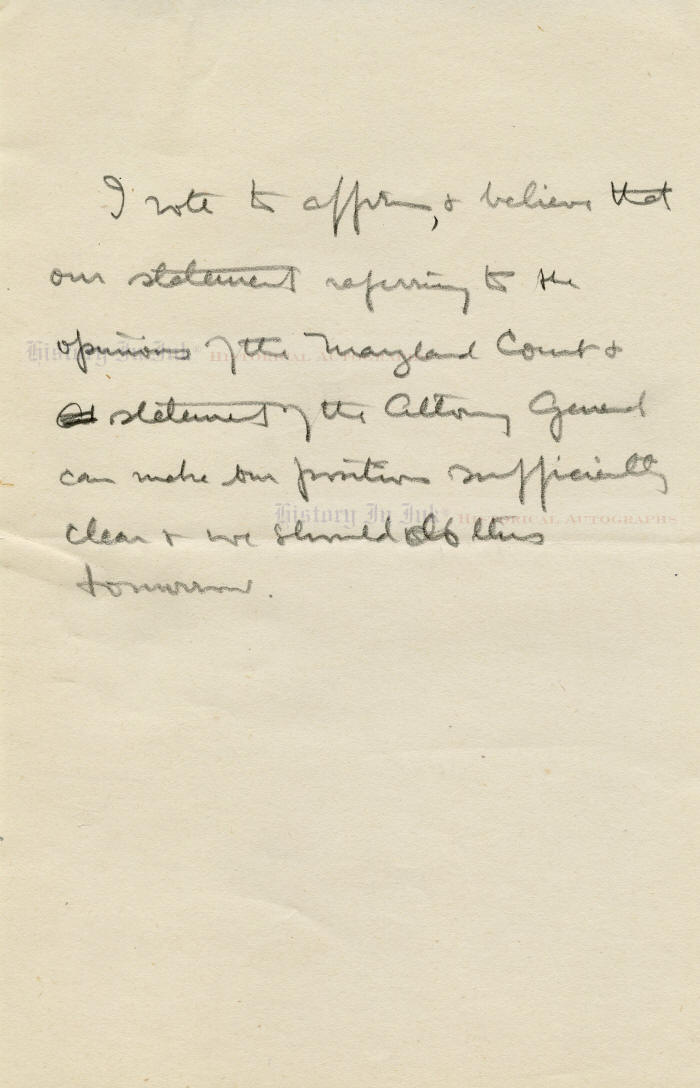 I vote to affirm, & believe that
our statement referring to the
opinions of the Maryland Court &
statement of the Attorney General
can make our position sufficiently
clear & we should do this
tomorrow.
History In Ink® HISTORICAL AUTOGRAPHS
History In Ink® HISTORICAL AUTOGRAPHS